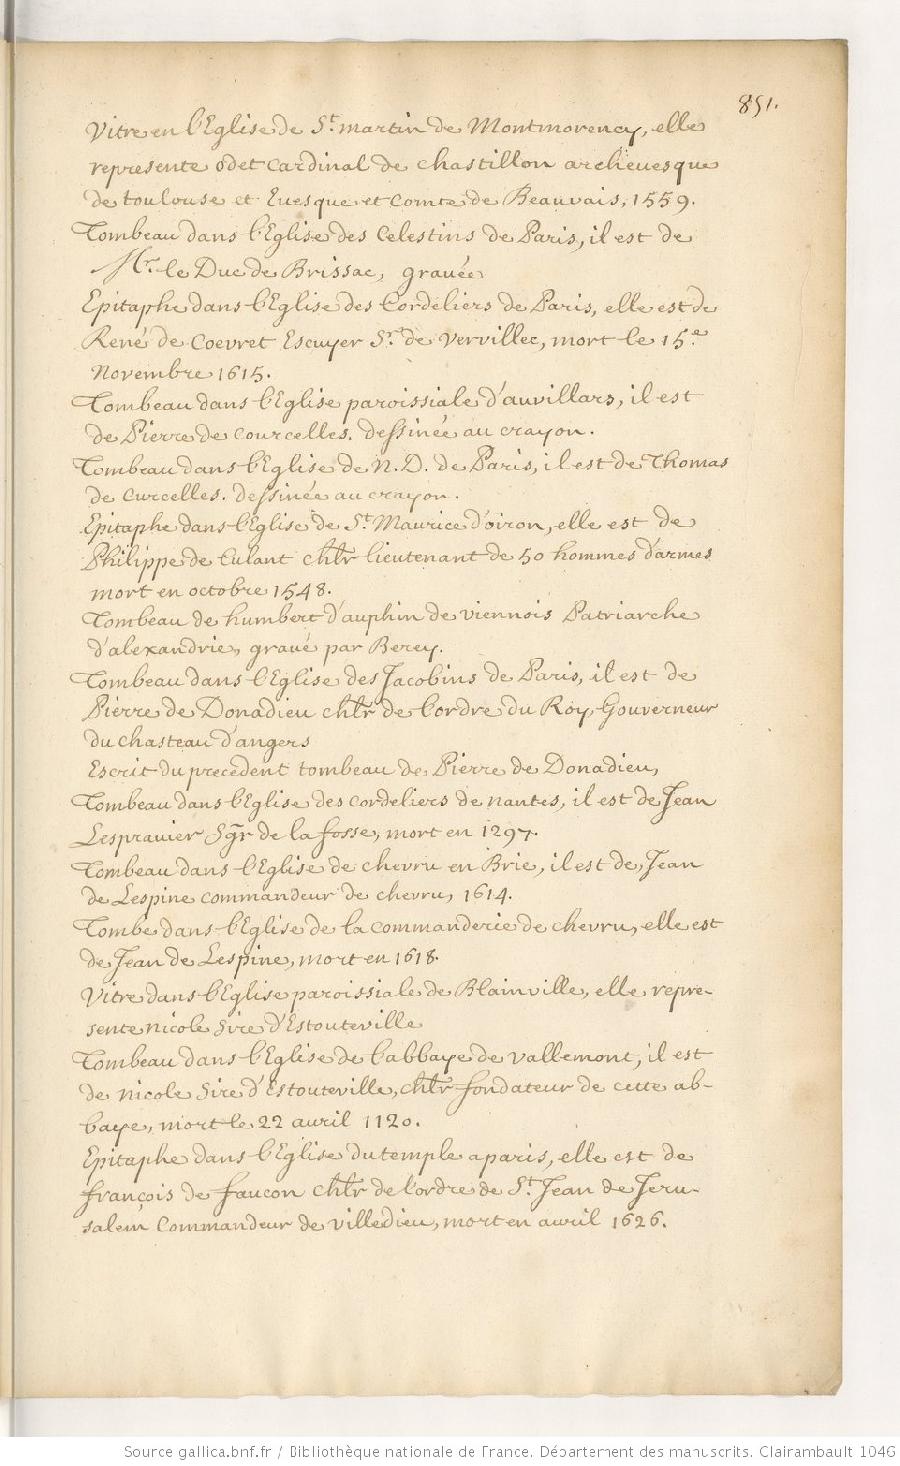 851.
Vitre en l'Eglise de St. martin de Montmorency, elle
represente odet cardinal de chastillon archevesque
de toulouse et Evesque et comte de Beauvais, 1559.
Tombeau dans l'Eglise des Celestins de Paris, il est de
Mr. le Duc de Brissac, gravée
Epitaphe dans l'Eglise des Cordeliers de Paris, elle est de
René de Coevret Escuyer Sr. de Vervillec, mort le 15e
Novembre 1615.
Tombeau dans l'Eglise paroissiale d'auvillars, il est
de Pierre de Courcelles. dessinée au crayon.
Tombeau dans l'Eglise de N. D. de Paris, il est de Thomas
de Curcelles. dessinée au crayon.
Epitaphe dans l'Eglise de St. Maurice d'oiron, elle est de
Philippe de Culant chlr lieutenant de 50 hommes d'armes
mort en octobre 1548.
Tombeau de humbert d'auphin de viennois Patriarche
d'alexandrie, gravé par Berey.
Tombeau dans l'Eglise des Jacobins de Paris, il est de
Pierre de Donadieu chlr de l'ordre du Roy, Gouverneur
du chasteau d'angers
Escrit du precedent tombeau de Pierre de Donadieu,
Tombeau dans l'Eglise des cordeliers de nantes, il est de Jean
Lespravier Sgr de la fosse, mort en 1297.
Tombeau dans l'Eglise de chevru en Brie, il est de Jean
de Lespine commandeur de chevru, 1614.
Tombe dans l'Eglise de la commanderie de chevru, elle est
de Jean de Lespine, mort en 1618.
Vitre dans l'Eglise paroissiale de Blainville, elle repre-
sente nicole sire d'Estouteville
Tombeau dans l'Eglise de l'abbaye de vallemont, il est
de nicole sire d'Estouteville, chlr fondateur de cette ab-
baye, mort le 22 avril 1120.
Epitaphe dans l'Eglise du temple a paris, elle est de
françois de faucon chlr de l'ordre de St. Jean de Jeru-
salem Commandeur de villedieu, mort en avril 1626.
Source gallica.bnf.fr / Bibliothèque nationale de France. Département des manuscrits. Clairambault 1046